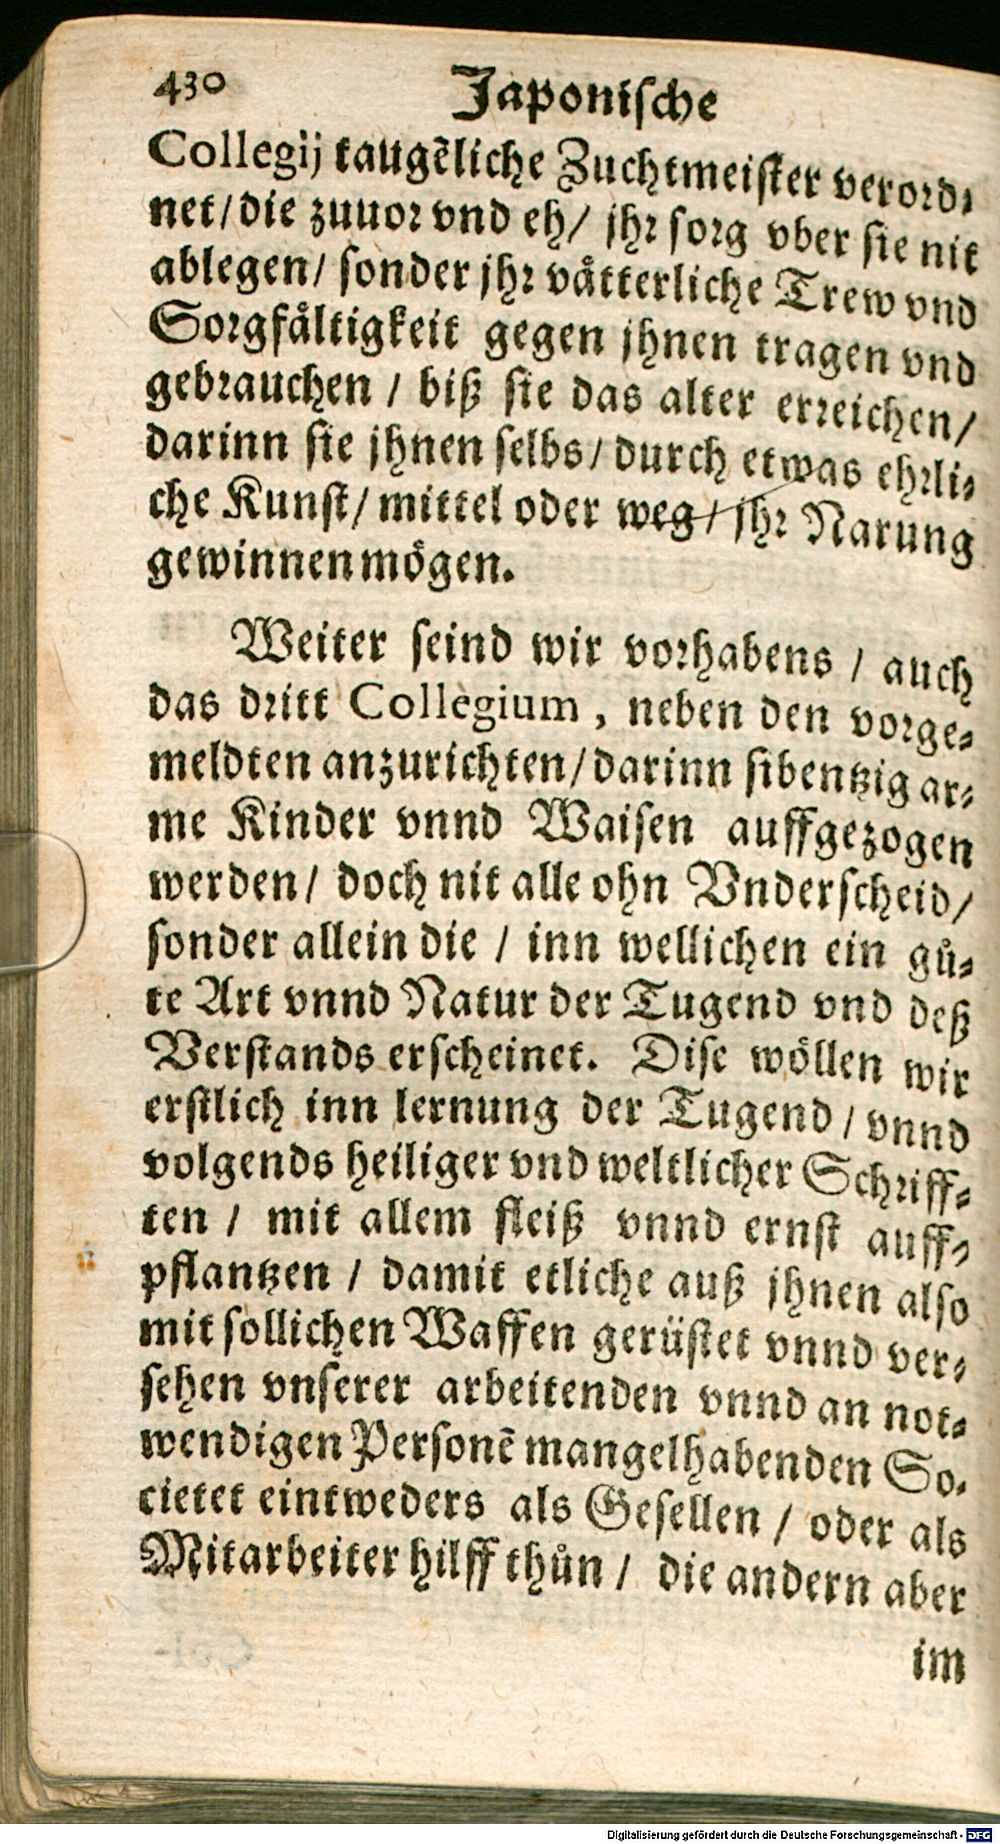 430 Japonische
Collegij taugẽliche Zuchtmeister verord⸗
net/die zuuor vnd eh/ jhr sorg vber sie nit
ablegen/ sonder jhr vaͤtterliche Trew vnd
Sorgfaͤltigkeit gegen jhnen tragen vnd
gebrauchen / biß sie das alter erreichen/
darinn sie jhnen selbs/ durch etwas ehrli⸗
che Kunst/ mittel oder weg/ jhr Narung
gewinnen moͤgen.
Weiter seind wir vorhabens / auch
das dritt Collegium, neben den vorge⸗
meldten anzurichten/ darinn sibentzig ar⸗
me Kinder vnnd Waisen auffgezogen
werden/ doch nit alle ohn Vnderscheid/
sonder allein die / inn wellichen ein guͦ⸗
te Art vnnd Natur der Tugend vnd deß
Verstands erscheinet. Dise woͤllen wir
erstlich inn lernung der Tugend / vnnd
volgends heiliger vnd weltlicher Schriff⸗
ten / mit allem fleiß vnnd ernst auff⸗
pflantzen / damit etliche auß jhnen also
mit sollichen Waffen gerüstet vnnd ver⸗
sehen vnserer arbeitenden vnnd an not⸗
wendigen Personẽ mangelhabenden So⸗
cietet eintweders als Gesellen / oder als
Mitarbeiter hilff thuͦn / die andern aber
im
Digitalisierung gefördert durch die Deutsche Forschungsgemeinschaft - DFG